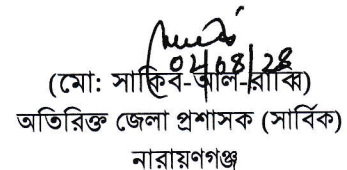 ০৫/০৪/২৪
(মো: সাকিব-আল-রাব্বি)
অতিরিক্ত জেলা প্রশাসক (সার্বিক)
নারায়ণগঞ্জ